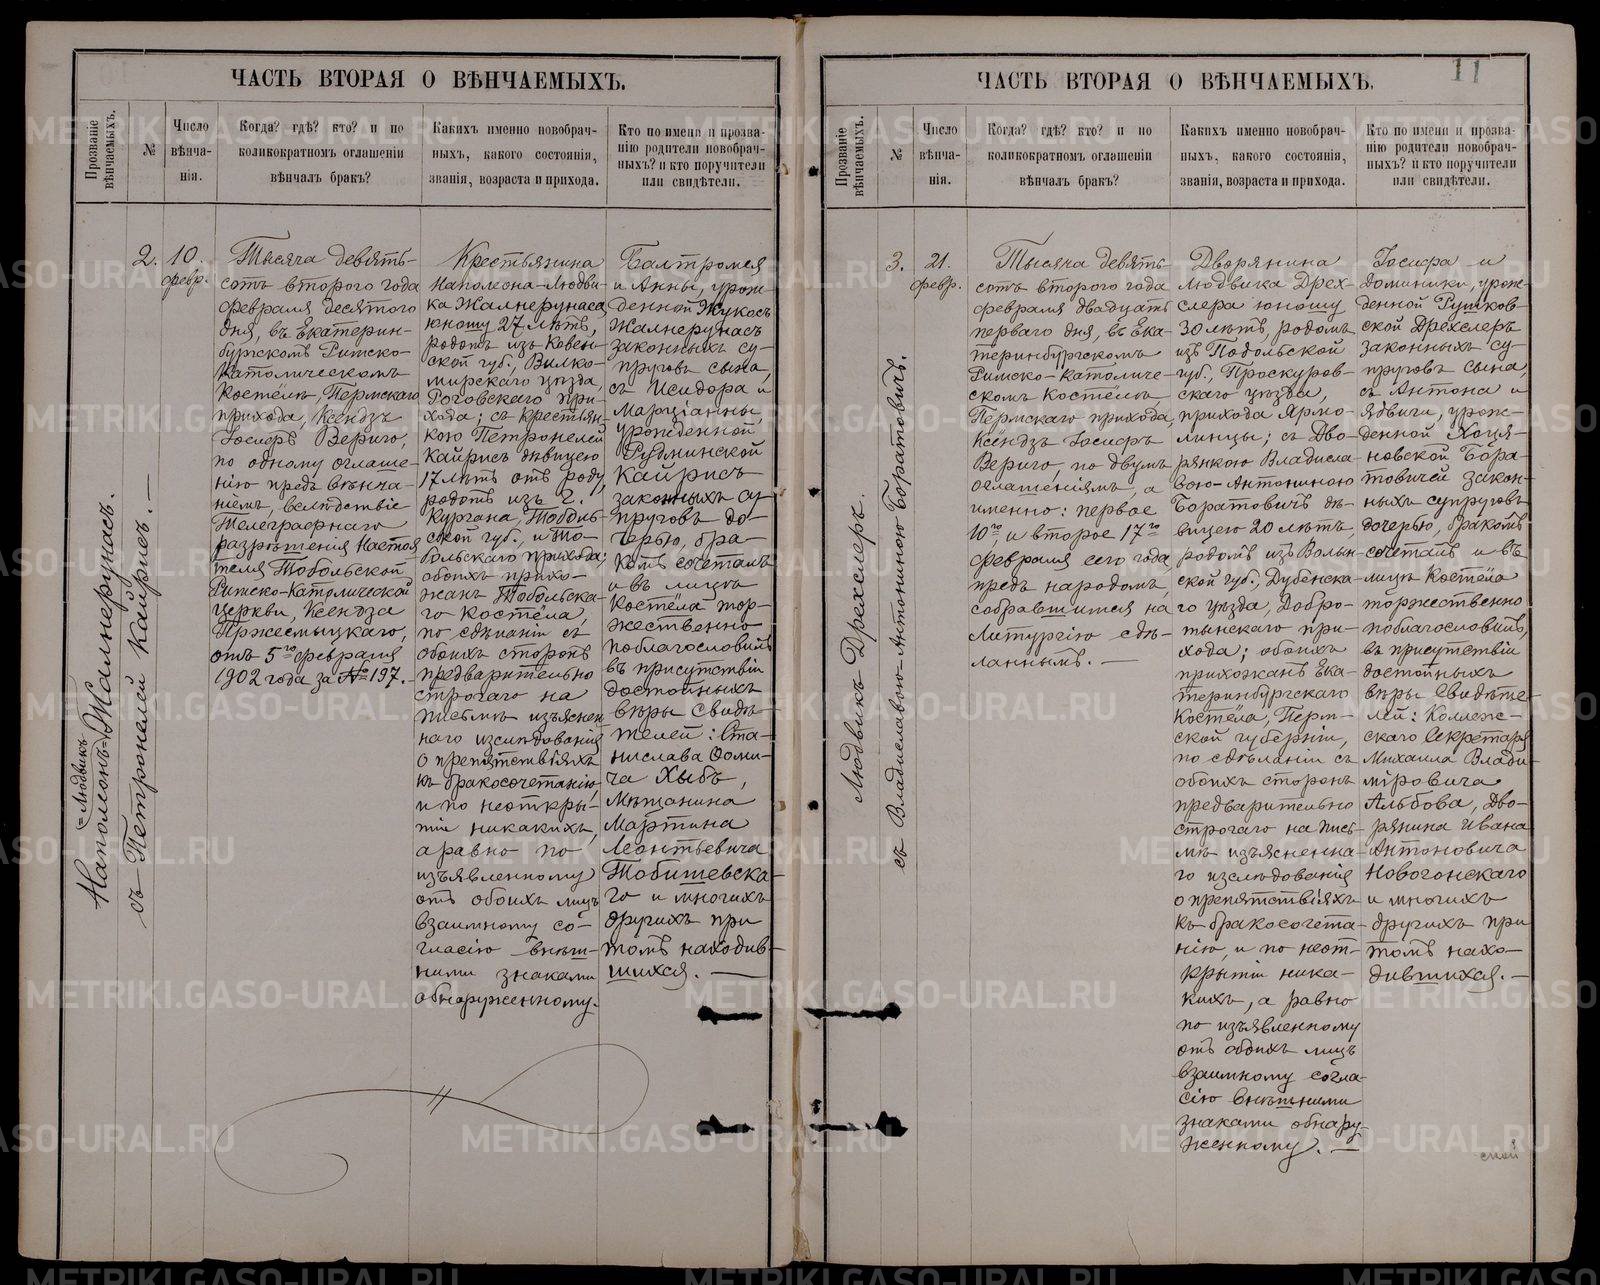 ЧАСТЬ ВТОРАЯ О ВѢНЧАЕМЫХЪ.
Прозваніе вѣнчаемыхъ.
№
Число вѣнча-нія.
Когда? гдѣ? кто? и по
коликократномъ оглашеніи
вѣнчалъ бракъ?
Какихъ именно новобрач-
ныхъ, какого состоянія,
званія, возраста и прихода.
Кто по имени и прозва-
нію родители новобрач-
ныхъ? и кто поручители
или свидѣтели.
Людвикъ
Наполеонъ-Жалнерунасъ.
съ Петронелей Кайрисъ. —
2.
10.
февр.
Тысяча девять-
сотъ второго года
февраля десятого
дня, въ Екатерин-
бургскомъ Римско-
Католическомъ
Костёлѣ, Пермскаго
прихода, Ксендзъ
Іосифъ Вериго,
по одному оглаше-
нію предъ вѣнча-
ніемъ, вслѣдствіе
Телеграфнаго
разрѣшенія Настоя-
теля Тобольской
Римско-Католической
Церкви, Ксендза
Пржесмыцкаго,
отъ 5го февраля
1902 года за № 197. —
Крестьянина
Наполеона-Людви-
ка Жалнерунаса
юношу 27 лѣтъ,
родомъ изъ Ковен-
ской губ., Вилко-
мирскаго уѣзда,
Роговскаго при-
хода; съ крестьян-
кою Петронелей
Кайрисъ дѣвицею
17 лѣтъ отъ роду,
родомъ изъ г.
Кургана, Тоболь-
ской губ., и То-
больскаго прихода;
обоихъ прихо-
жанъ Тобольска-
го Костёла,
по сдѣланіи съ
обоихъ сторонъ
предварительно
строгаго на
письмѣ изъяснен-
наго изслѣдованія
о препятствіяхъ
къ бракосочетанію,
и по неоткры-
тіи никакихъ,
а равно по
изъявленному
отъ обоихъ лицъ
взаимному со-
гласію внѣш-
ними знаками
обнаруженному.
Балтромея
и Анны, урож-
денной Жукосъ
Жалнерунасъ
законныхъ су-
пруговъ сына,
съ Исидора и
Марціанны,
урожденной
Рудминской
Кайрисъ
законныхъ су-
пруговъ до-
черью, бра-
комъ сочеталъ
и въ лицѣ
Костёла тор-
жественно
поблагословилъ
въ присутствіи
достойныхъ
вѣры Свидѣ-
телей: Ста-
нислава Ѳоми-
ча Хыбъ,
Мѣщанина
Мартина
Леонтьевича
Тобишевска-
го и многихъ
другихъ при
томъ находив-
шихся. —
11
ЧАСТЬ ВТОРАЯ О ВѢНЧАЕМЫХЪ.
Прозваніе вѣнчаемыхъ.
№
Число вѣнча-нія.
Когда? гдѣ? кто? и по
коликократномъ оглашеніи
вѣнчалъ бракъ?
Какихъ именно новобрач-
ныхъ, какого состоянія,
званія, возраста и прихода.
Кто по имени и прозва-
нію родители новобрач-
ныхъ? и кто поручители
или свидѣтели.
Людвикъ Дрехслеръ.
съ Владиславою-Антониною Боратовичъ.
3.
21.
февр.
Тысяча девять-
сотъ второго года
февраля двадцать
перваго дня, въ Ека-
теринбургскомъ
Римско-Католиче-
скомъ Костёлѣ,
Пермскаго прихода,
Ксёндзъ Іосифъ
Вериго, по двумъ
оглашеніямъ, а
именно: первое
10го и второе 17го
февраля сего года
предъ народомъ,
собравшимся на
Литургію сдѣ-
ланнымъ. —
Дворянина
Людвика Дрех-
слера юношу
30 лѣтъ, родомъ
изъ Подольской
губ., Проскуров-
скаго уѣзда,
прихода Ярмо-
линцы; съ Дво-
рянкою Владисла-
вою-Антониною
Боратовичъ дѣ-
вицею 20 лѣтъ,
родомъ изъ Волын-
ской губ., Дубенска-
го уѣзда, Добро-
тынскаго при-
хода; обоихъ
прихожанъ Ека-
теринбургскаго
Костёла, Перм-
ской губерніи,
по сдѣланіи съ
обоихъ сторонъ
предварительно
строгаго на пись-
мѣ изъясненна-
го изслѣдованія
о препятствіяхъ
къ бракосочета-
нію, и по неот-
крытіи ника-
кихъ, а равно
по изъявленному
отъ обоихъ лицъ
взаимному согла-
сію внѣшними
знаками обнару-
женному. —
Іосифа и
Доминики, урож-
денной Рушков-
ской Дрехслеръ
законныхъ су-
пруговъ сына,
съ Антона и
Ядвиги, урож-
денной Хоця-
новской Бора-
товичей закон-
ныхъ супруговъ
дочерью, бракомъ
сочеталъ и въ
лицѣ Костёла
торжественно
поблагословилъ,
въ присутствіи
достойныхъ
вѣры Свидѣте-
лей: Коллеж-
скаго Секретаря
Михаила Влади-
міровича
Альбова, Дво-
рянина Ивана
Антоновича
Новогонскаго
и многихъ
другихъ при
томъ нахо-
дившихся. —